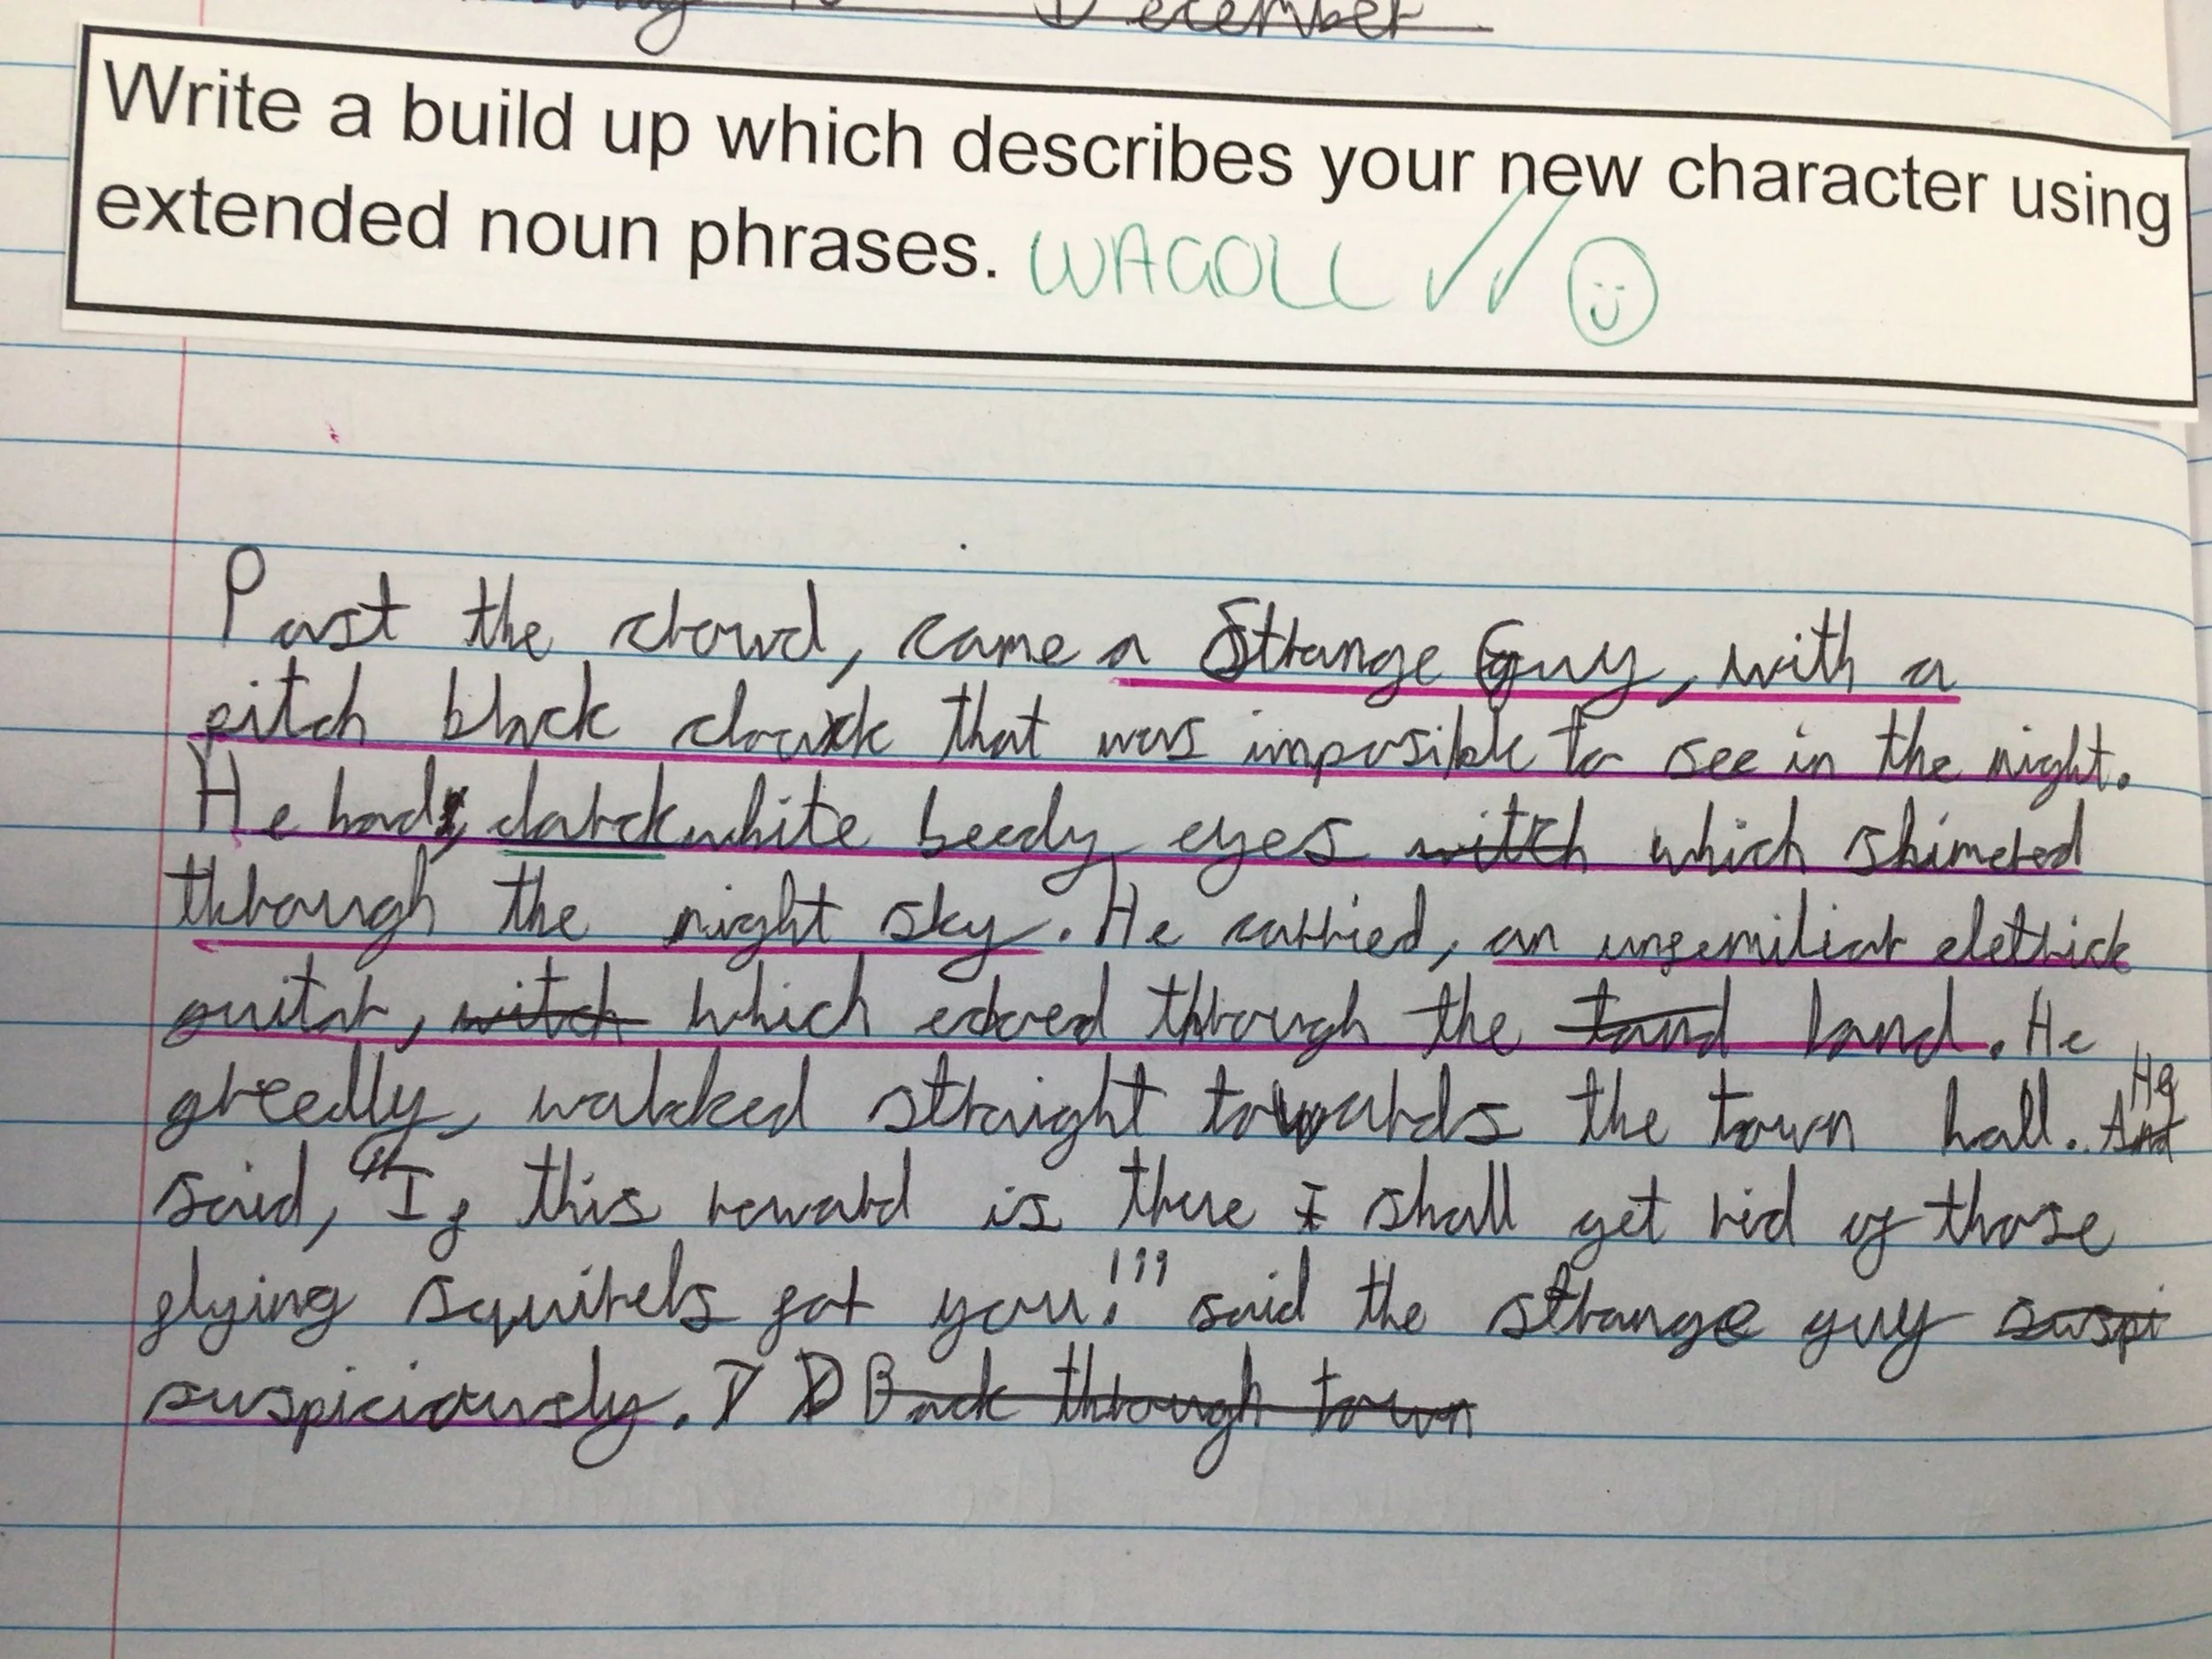 December
Write a build up which describes your new character using
extended noun phrases. WAGOLL
Past the crowd, came a Strange Guy, with a
pitch black clowck that was imposible to see in the night.
He had, darck white beedy eyes witch which shimered
through the night sky. He carried, an unfemiliar eletrick
guitar, witch which eckoed through the land. He
greedly, walcked straight towards the town hall. And He
said, "If this reward is there I shall get rid of those
flying squirels for you!" said the strange guy suspi
suspiciously. D Back through town